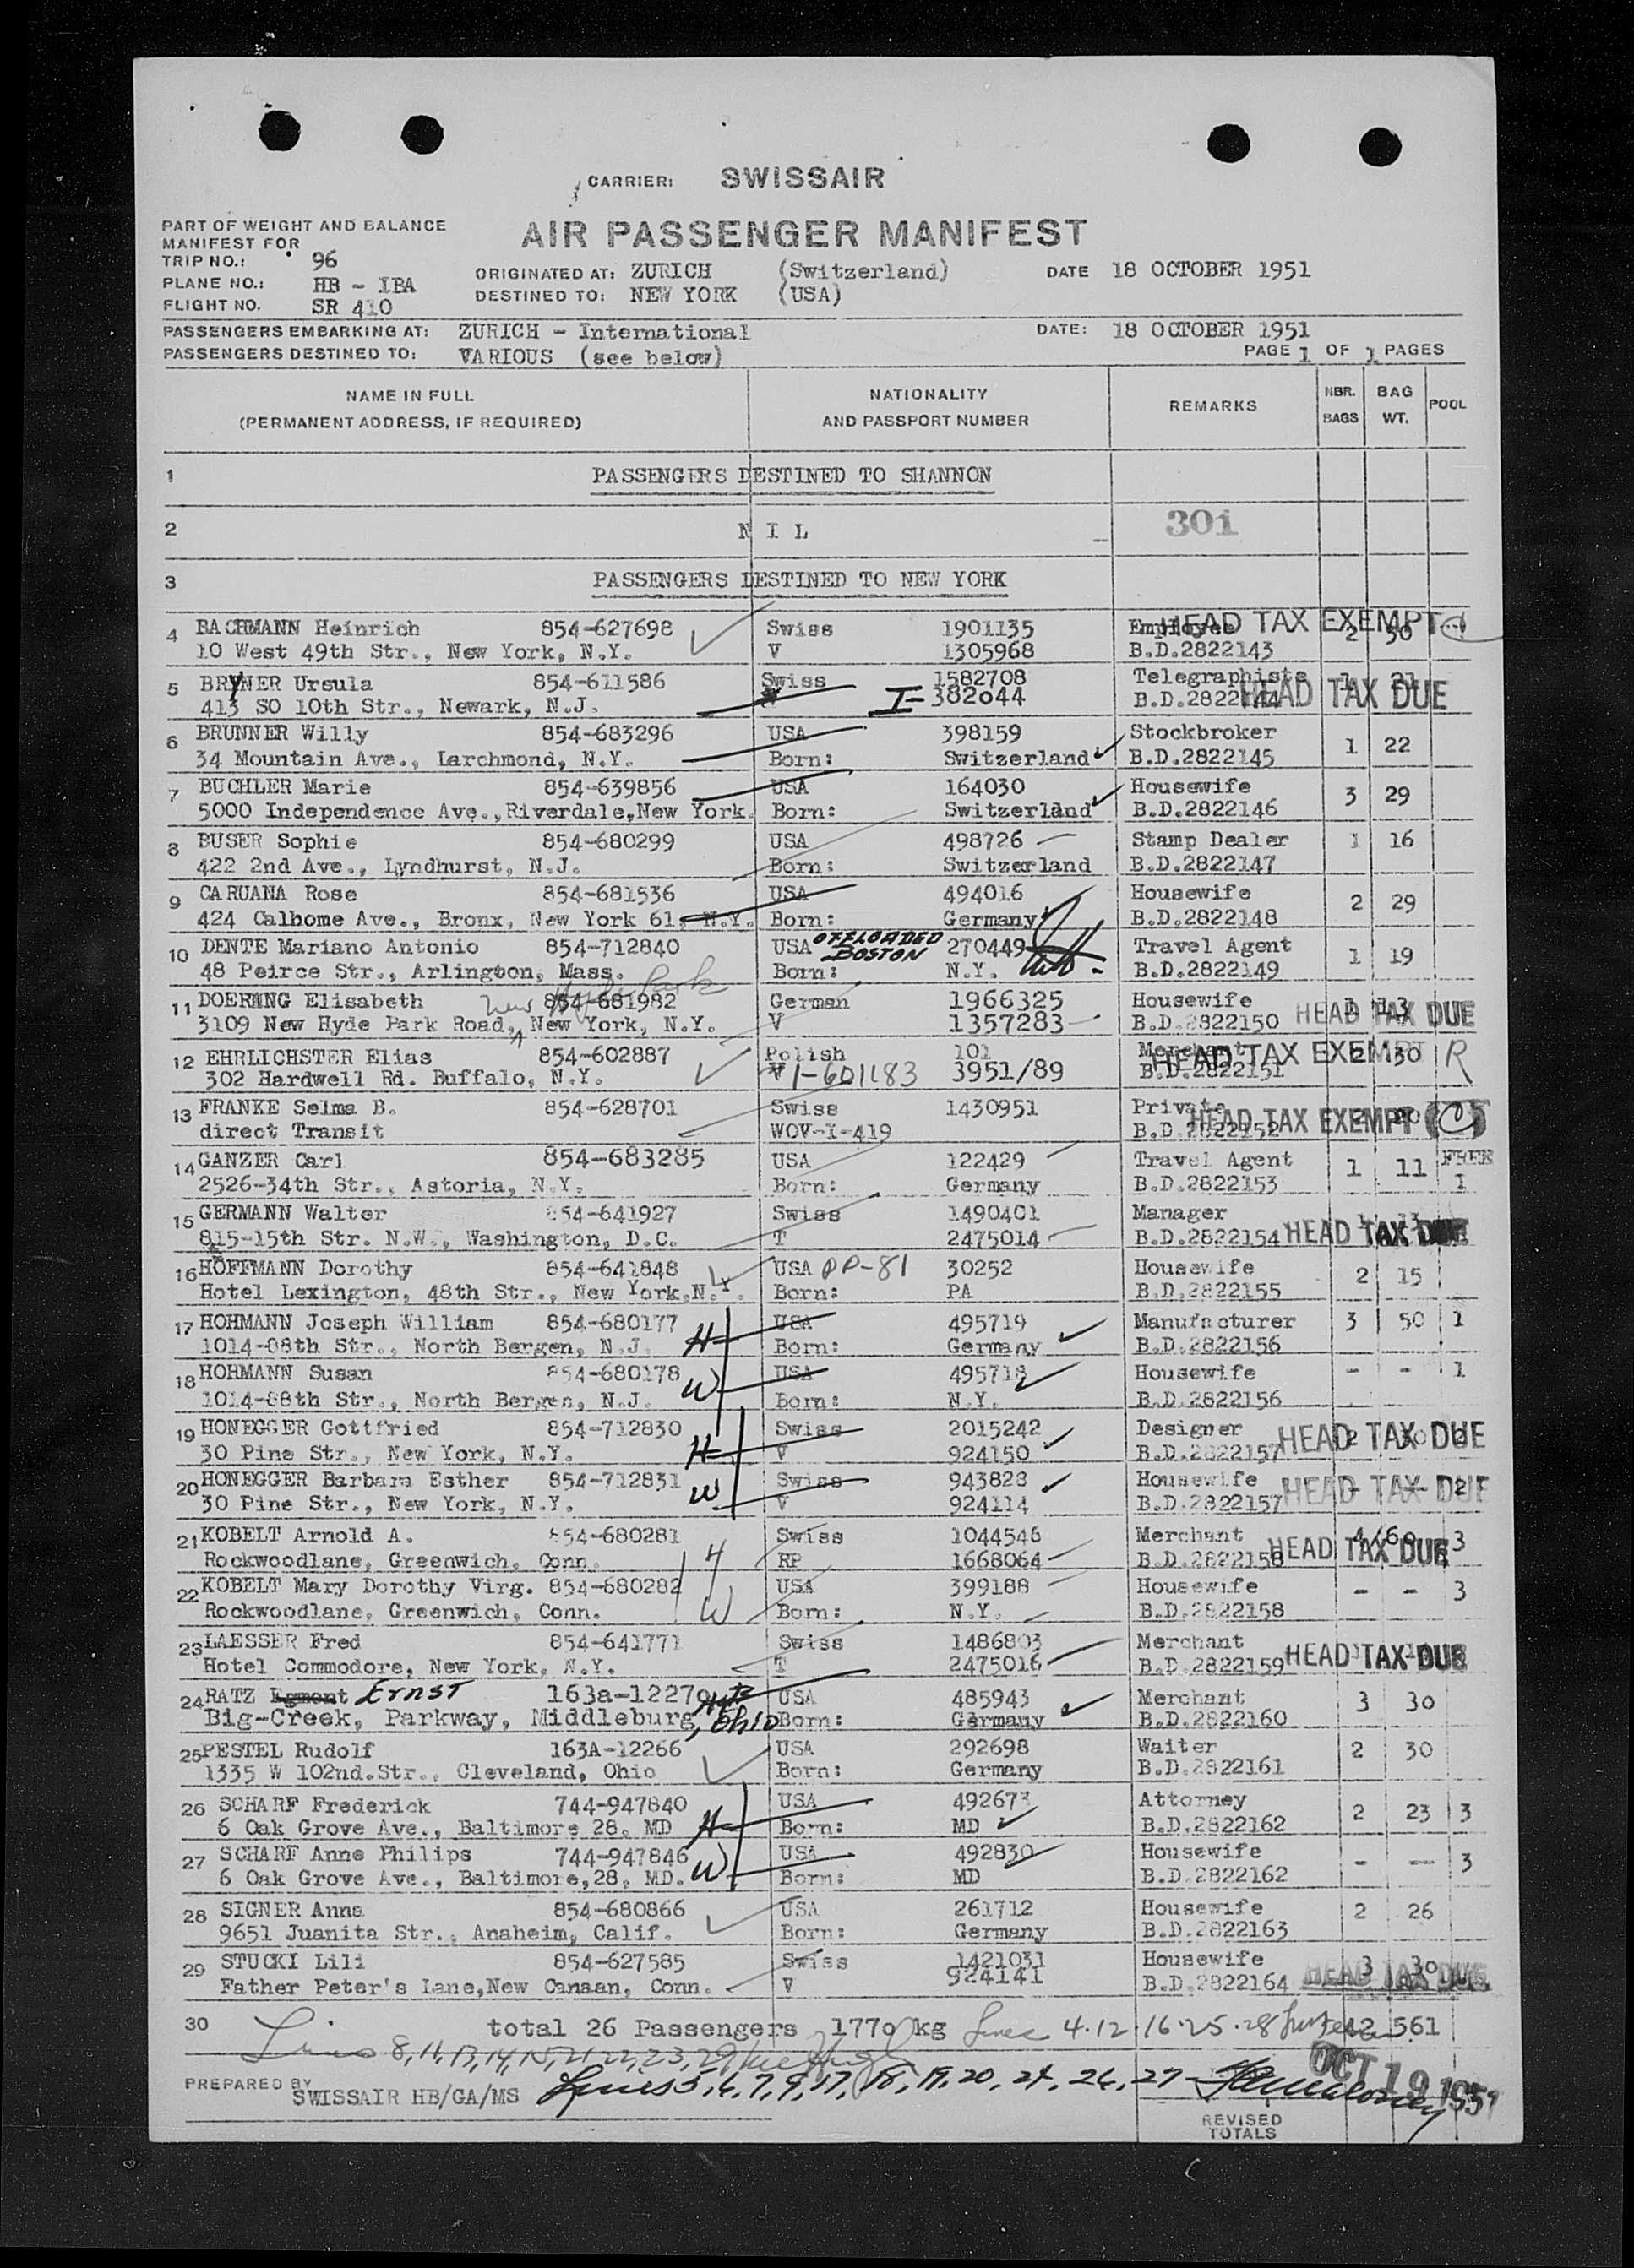 CARRIER: SWISSAIR
PART OF WEIGHT AND BALANCE
AIR PASSENGER MANIFEST
MANIFEST FOR
TRIP NO.: 96
ORIGINATED AT: ZURICH (Switzerland) DATE 18 OCTOBER 1951
PLANE NO.: HB - IBA
DESTINED TO: NEW YORK (USA)
FLIGHT NO. SR 410
PASSENGERS EMBARKING AT: ZURICH - International DATE: 18 OCTOBER 1951
PASSENGERS DESTINED TO: VARIOUS (see below) PAGE 1 OF 1 PAGES
NAME IN FULL NATIONALITY REMARKS NBR. BAG POOL
(PERMANENT ADDRESS, IF REQUIRED) AND PASSPORT NUMBER BAGS WT.
1 PASSENGERS DESTINED TO SHANNON
2 N I L 301
3 PASSENGERS DESTINED TO NEW YORK
4 BACHMANN Heinrich 854-627698 Swiss 1901135 Employee HEAD TAX EXEMPT 2 50
10 West 49th Str., New York, N.Y. V 1305968 B.D.2822143
5 BRYNER Ursula 854-611586 Swiss 1582708 Telegraphiste 1 21
413 SO 10th Str., Newark, N.J. I- 382044 B.D.2822144 HEAD TAX DUE
6 BRUNNER Willy 854-683296 USA 398159 Stockbroker 1 22
34 Mountain Ave., Larchmond, N.Y. Born: Switzerland B.D.2822145
7 BUCHLER Marie 854-639856 USA 164030 Housewife 3 29
5000 Independence Ave.,Riverdale,New York. Born: Switzerland B.D.2822146
8 BUSER Sophie 854-680299 USA 498726 Stamp Dealer 1 16
422 2nd Ave., Lyndhurst, N.J. Born: Switzerland B.D.2822147
9 CARUANA Rose 854-681536 USA 494016 Housewife 2 29
424 Calhome Ave., Bronx, New York 61, N.Y. Born: Germany B.D.2822148
10 DENTE Mariano Antonio 854-712840 USA OFFLOADED BOSTON 270449 Travel Agent 1 19
48 Peirce Str., Arlington, Mass. Born: N.Y. B.D.2822149
11 DOERING Elisabeth New Hyde Park 854-681982 German 1966325 Housewife 1 13 HEAD TAX DUE
3109 New Hyde Park Road, New York, N.Y. V 1357283 B.D.2822150
12 EHRLICHSTER Elias 854-602887 Polish 101 Merchant HEAD TAX EXEMPT 2 30 R
302 Hardwell Rd. Buffalo, N.Y. V 1-601183 3951/89 B.D.2822151
13 FRANKE Selma B. 854-628701 Swiss 1430951 Private HEAD TAX EXEMPT
direct Transit WOV-I-419 B.D.2822152
14 GANZER Carl 854-683285 USA 122429 Travel Agent 1 11 FREE
2526-34th Str., Astoria, N.Y. Born: Germany B.D.2822153 1
15 GERMANN Walter 854-641927 Swiss 1490401 Manager 1 13
815-15th Str. N.W., Washington, D.C. T 2475014 B.D.2822154 HEAD TAX DUE
16 HOFFMANN Dorothy 854-641848 USA PP-81 30252 Housewife 2 15
Hotel Lexington, 48th Str., New York,N.Y. Born: PA B.D.2822155
17 HOHMANN Joseph William 854-680177 USA 495719 Manufacturer 3 50 1
1014-88th Str., North Bergen, N.J. H Born: Germany B.D.2822156
18 HOHMANN Susan 854-680178 USA 495718 Housewife - - 1
1014-88th Str., North Bergen, N.J. W Born: N.Y. B.D.2822156
19 HONEGGER Gottfried 854-712830 Swiss 2015242 Designer 2 30 2
30 Pine Str., New York, N.Y. H V 924150 B.D.2822157 HEAD TAX DUE
20 HONEGGER Barbara Esther 854-712831 Swiss 943828 Housewife - - 2
30 Pine Str., New York, N.Y. W V 924114 B.D.2822157 HEAD TAX DUE
21 KOBELT Arnold A. 854-680281 Swiss 1044546 Merchant 4 60 3
Rockwoodlane, Greenwich, Conn. H RP 1668064 B.D.2822158 HEAD TAX DUE
22 KOBELT Mary Dorothy Virg. 854-680282 USA 399188 Housewife - - 3
Rockwoodlane, Greenwich, Conn. W Born: N.Y. B.D.2822158
23 LAESSER Fred 854-641771 Swiss 1486803 Merchant
Hotel Commodore, New York, N.Y. T 2475016 B.D.2822159 HEAD TAX DUE
24 RATZ Egmont Ernst 163a-12270 USA 485943 Merchant 3 30
Big-Creek, Parkway, Middleburg Hgts, Ohio Born: Germany B.D.2822160
25 PESTEL Rudolf 163A-12266 USA 292698 Waiter 2 30
1335 W 102nd.Str., Cleveland, Ohio Born: Germany B.D.2822161
26 SCHARF Frederick 744-947840 USA 492673 Attorney 2 23 3
6 Oak Grove Ave., Baltimore 28, MD H Born: MD B.D.2822162
27 SCHARF Anne Philips 744-947846 USA 492830 Housewife - - 3
6 Oak Grove Ave., Baltimore,28, MD. W Born: MD B.D.2822162
28 SIGNER Anna 854-680866 USA 261712 Housewife 2 26
9651 Juanita Str., Anaheim, Calif. Born: Germany B.D.2822163
29 STUCKI Lili 854-627585 Swiss 1421031 Housewife 3 30
Father Peter's Lane,New Canaan, Conn. V 924141 B.D.2822164 HEAD TAX DUE
30 total 26 Passengers 1770 kg Lines 4.12.16.25.28 42 561
Lines 8,11,13,14,15,21,22,23,29
OCT 19 1951
PREPARED BY SWISSAIR HB/GA/MS Lines 5,6,7,9,17,18,19,20,24,26,27
REVISED
TOTALS